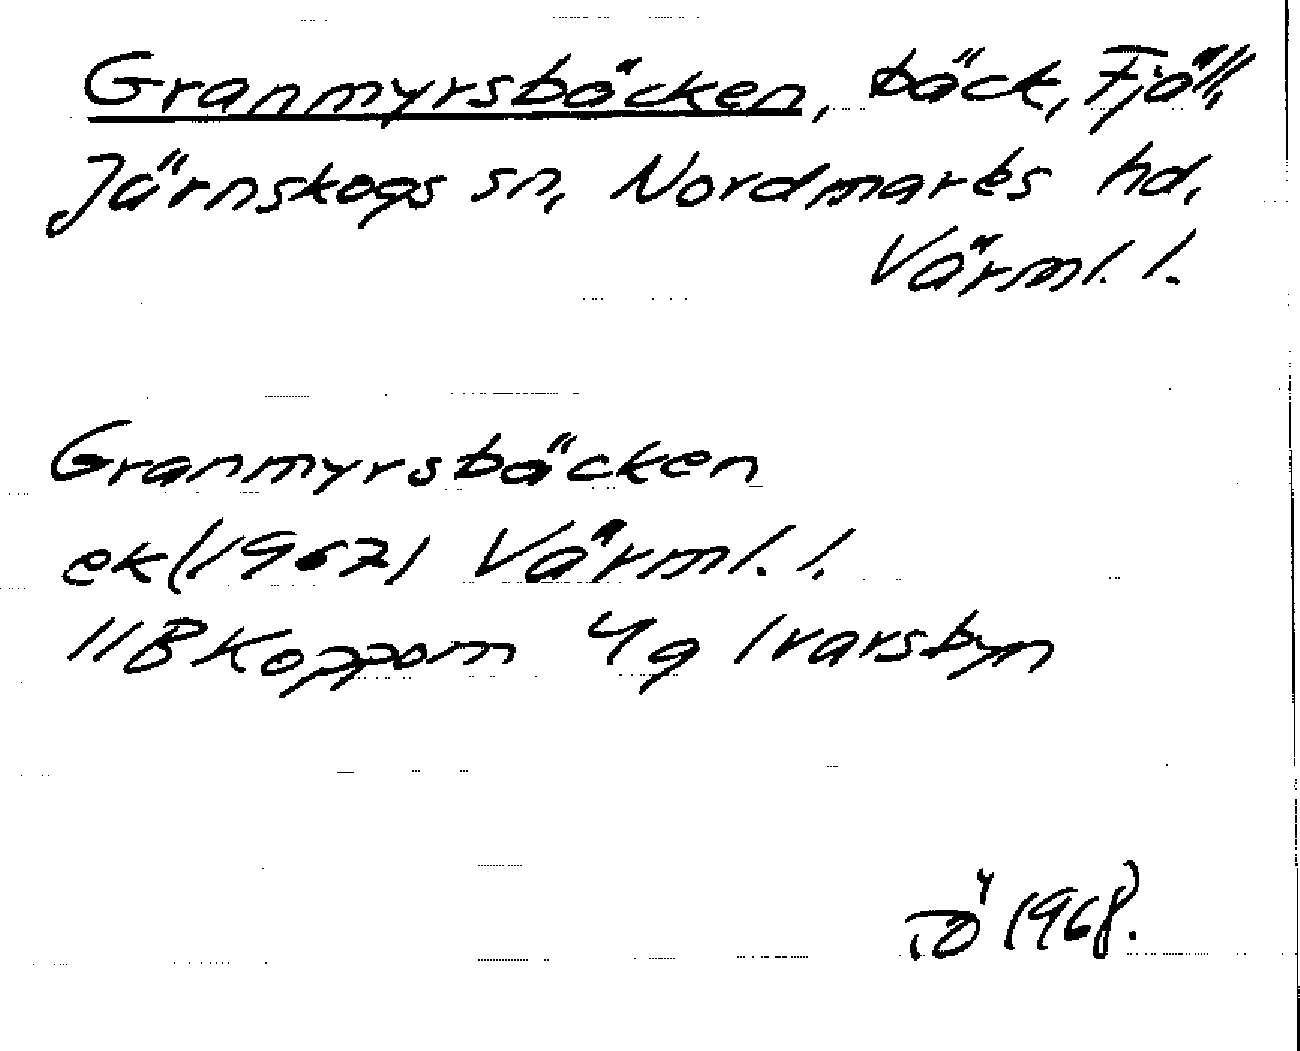 Granmyrsbäcken, bäck, Fjäll,
Järnskogs sn, Nordmarks hd,
Värml. l.
Granmyrsbäcken
ek(1967) Värml. l.
11B Koppom 4g Ivarsbyn
TÖ 1968.